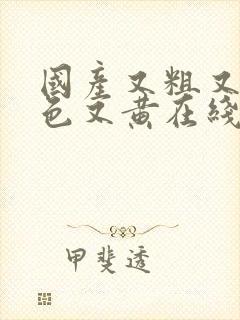 國產又粗又
色文黃在綫
甲斐透